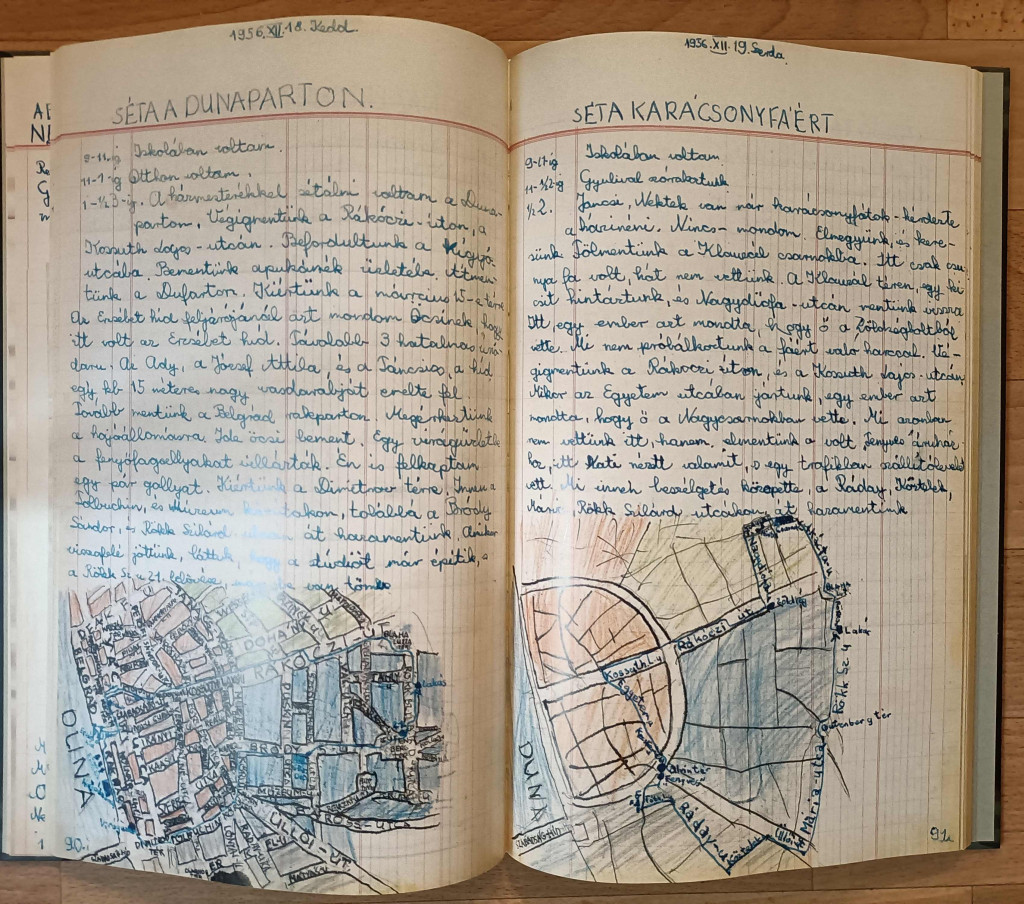 1956.XII.18. Kedd.
SÉTA A DUNAPARTON.
9-11-ig Iskolában voltam.
11-1-ig Otthon voltam.
1-½3-ig. A házmesterékkel sétálni voltam a Duna-
parton. Végigmentünk a Rákóczi-úton, a
Kossuth Lajos-utcán. Befordultunk a Kígyó-
utcába. Bementünk apukámék üzletébe. Átmen-
tünk a Duparton. Kiértünk a március 15-e térre
Az Erzsébet híd feljárójánál azt mondom Öcsinek, hogy
itt volt az Erzsébet híd. Távolabb 3 hatalmas úszó
daru. Az Ady, a József Attila, és a Táncsics, a híd
egy kb 15 méteres nagy vasdarabját emelte fel.
Tovább mentünk a Belgrád rakparton. Megérkeztünk
a hajóállomásra. Ide öcsi bement. Egy virágüzletbe
a fenyőfagallyakat
Én is felkaptam
egy pár gallyat. Kiértünk a Dimitrov térre. Innen a
Tolbuchin, és Múzeum körutakon, továbbá a Bródy
Sándor, és Rökk Szilárd utcán át hazamentünk. Amikor
visszafelé jöttünk, láttuk, hogy a stúdiót már építik, s
a Rökk Sz u 21. lövése, be van tömve
DUNA
BELGRÁD
KOSSUTH
DOHÁNY U
RÁKÓCZI
BRÓDY
TOLBUCHIN
ÜLLŐI-ÚT
DIMITROV TÉR
Lakás
90.
1956.XII.19. Szerda.
SÉTA KARÁCSONYFÁÉRT
9-11-ig Iskolában voltam.
11-½2-ig Gyulival szórakoztunk
½2. Jancsi, Nektek van már karácsonyfátok-kérdezte
a házinéni. Nincs-mondom. Elmegyünk, és kere-
sünk. Fölmentünk a Klauzál csarnokba. Itt csak csu-
nya fa volt, hát nem vettünk. A Klauzál téren, egy ki-
csit hintáztunk, és Nagydiófa-utcán mentünk vissza
Itt egy ember azt mondta, hogy ő a Zöldségboltból
vette. Mi nem próbálkoztunk a fáért való harccal. Vé-
gigmentünk a Rákóczi úton, és a Kossuth Lajos-utcán,
Mikor az Egyetem utcában jártunk, egy ember azt
mondta, hogy ő a Nagycsarnokban vette. Mi azonban
nem vettünk itt, hanem, elmentünk a volt Fenyves áruház-
ba, itt Kati nézett valamit, s egy trafikban szállítólevelet
vett. Mi innen beszélgetés közepette, a Ráday, Köztelek,
Mária, Rökk Szilárd utcákon át hazamentünk
Rákóczi út
Kossuth L u
Egyetem
Nagydiófa
Lakás
Rökk Sz u
Gutenberg tér
Mária utca
Üllői
Ráday u
Köztelek
Kálvin tér
Fenyves
DUNA
SZABADSÁG HÍD
91.